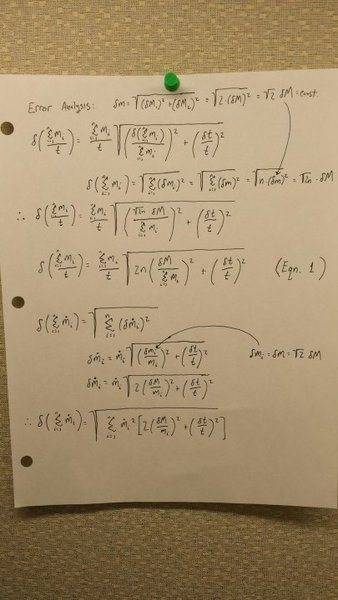 Error Analysis: δm = √((δM₁)² + (δM₂)²) = √(2·(δM)²) = √2 δM = const.
δ(Σᵢ₌₁ⁿ mᵢ / t) = Σᵢ₌₁ⁿ mᵢ / t √((δ(Σᵢ₌₁ⁿ mᵢ) / Σᵢ₌₁ⁿ mᵢ)² + (δt/t)²)
δ(Σᵢ₌₁ⁿ mᵢ) = √(Σᵢ₌₁ⁿ (δmᵢ)²) = √(Σᵢ₌₁ⁿ (δm)²) = √(n·(δm)²) = √(2n) · δM
∴ δ(Σᵢ₌₁ⁿ mᵢ / t) = Σᵢ₌₁ⁿ mᵢ / t √((√(2n) δM / Σᵢ₌₁ⁿ mᵢ)² + (δt/t)²)
δ(Σᵢ₌₁ⁿ mᵢ / t) = Σᵢ₌₁ⁿ mᵢ / t √(2n(δM / Σᵢ₌₁ⁿ mᵢ)² + (δt/t)²) (Eqn. 1)
δ(Σᵢ₌₁ⁿ ṁᵢ) = √(Σᵢ₌₁ⁿ (δṁᵢ)²)
δṁᵢ = ṁᵢ √((δmᵢ/mᵢ)² + (δt/t)²) δmᵢ = δm = √2 δM
δṁᵢ = ṁᵢ √(2(δM/mᵢ)² + (δt/t)²)
∴ δ(Σᵢ₌₁ⁿ ṁᵢ) = √(Σᵢ₌₁ⁿ ṁᵢ² [2(δM/mᵢ)² + (δt/t)²])